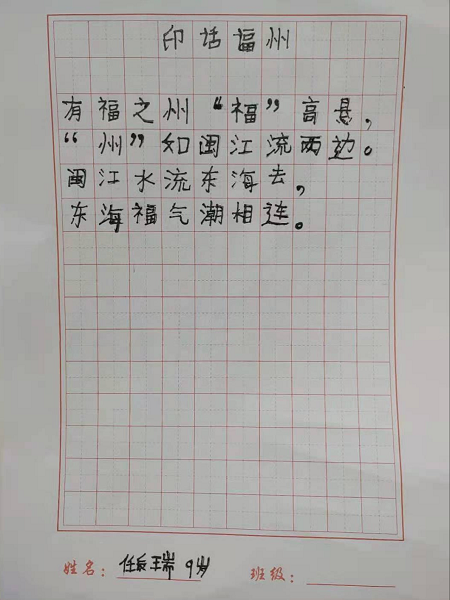 印话福州
有福之州“福”高悬，
“州”如闽江流两边。
闽江水流东海去，
东海福气潮相连。
姓名：任辰瑞 9岁 班级：